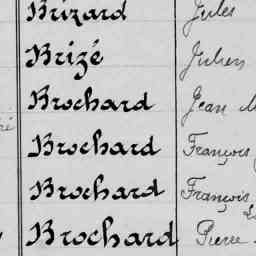 Brizard Jules
Brizé Julien
Brochard Jean
Brochard François
Brochard François
Brochard Pierre